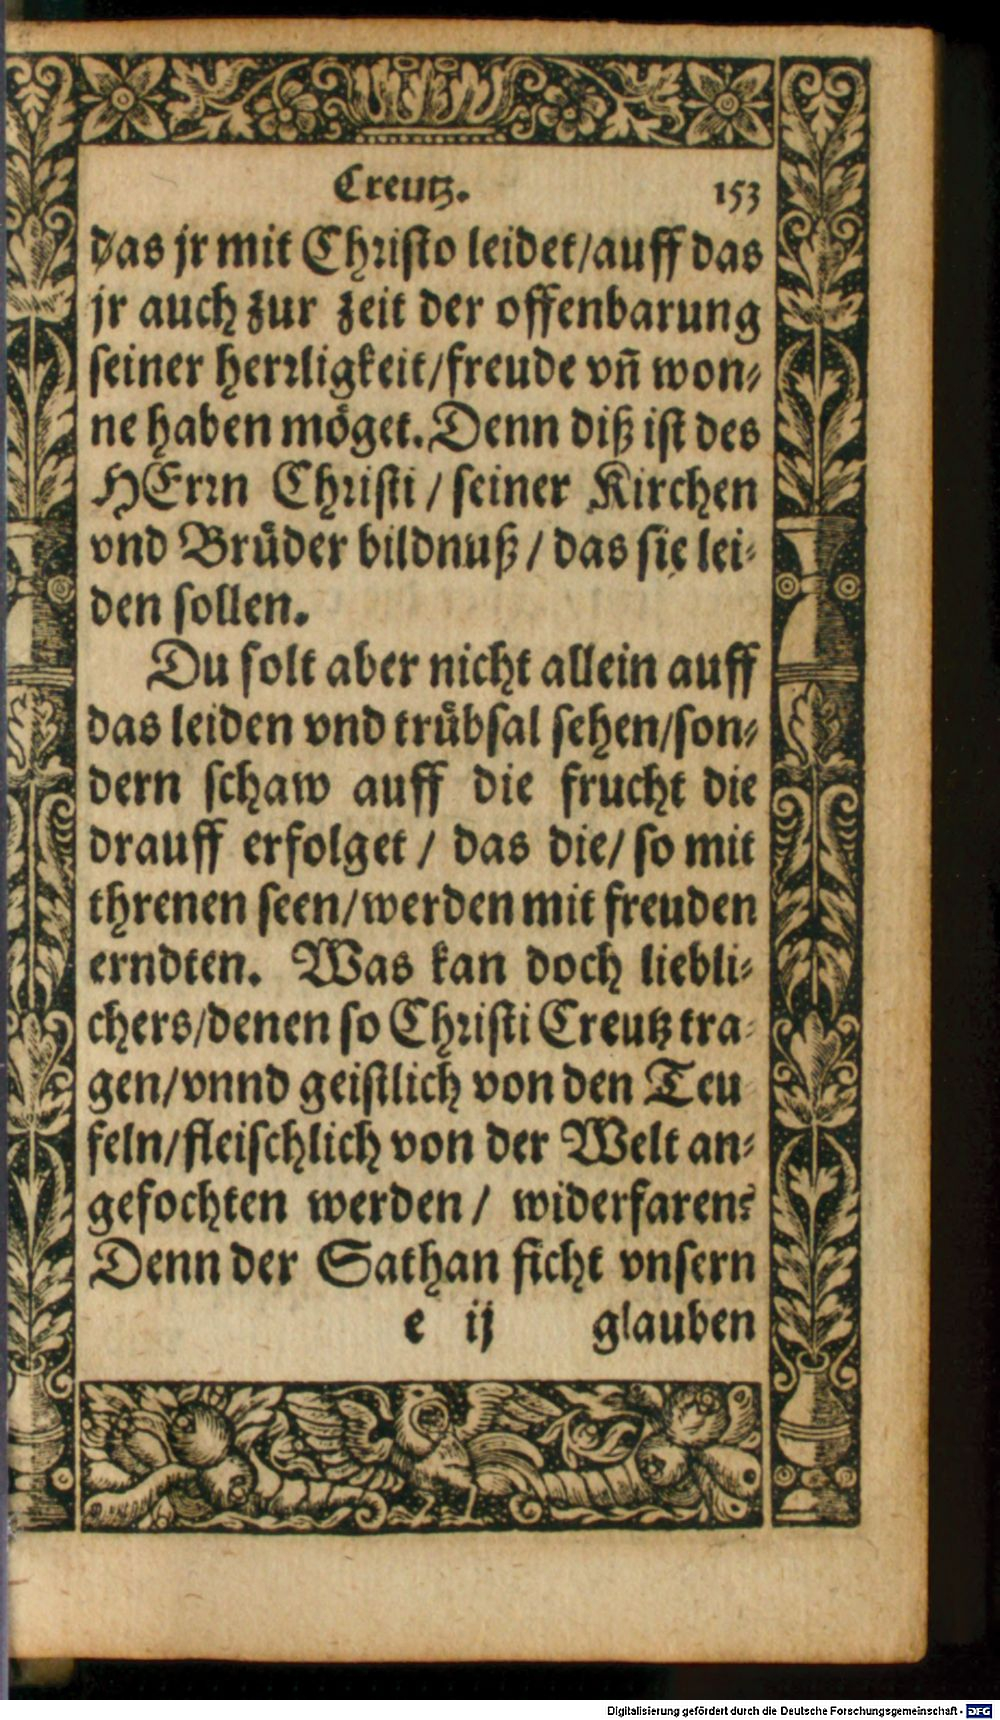 Creutz. 153
das jr mit Christo leidet/auff das
jr auch zur zeit der offenbarung
seiner herrligkeit/freude vn̄ won-
ne haben möget. Denn diß ist des
HErrn Christi / seiner Kirchen
vnd Brüder bildnuß / das sie lei-
den sollen.
Du solt aber nicht allein auff
das leiden vnd trübsal sehen/son-
dern schaw auff die frucht die
drauff erfolget / das die/ so mit
threnen seen/werden mit freuden
erndten. Was kan doch liebli-
chers/denen so Christi Creutz tra-
gen/vnnd geistlich von den Teu
feln/fleischlich von der Welt an-
gefochten werden/ widerfaren?
Denn der Sathan ficht vnsern
e ij glauben
Digitalisierung gefördert durch die Deutsche Forschungsgemeinschaft - DFG